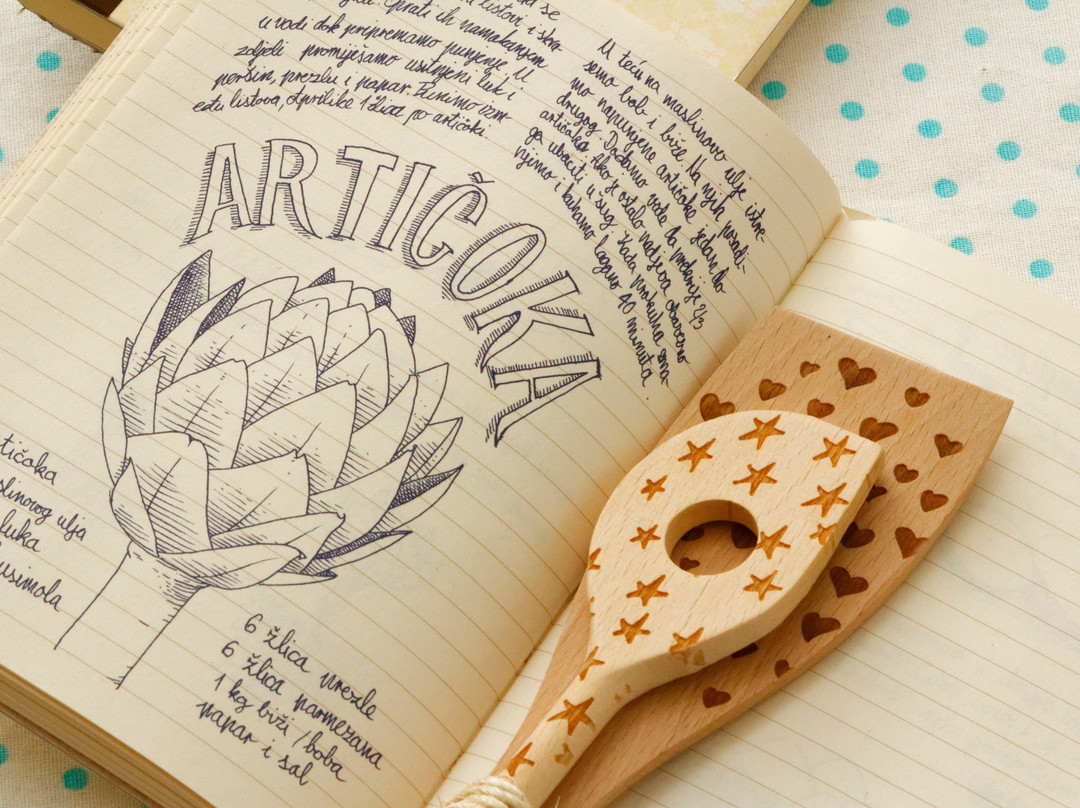 listovi, i
Oprati ih namakanjem
u vodi dok pripremamo punjenje. U
zdjeli promiješamo usitnjeni luk i
peršin, prezlu i papar. Punimo izm-
eđu listova, otprilike 1 žlica po artičoki.
U teću na maslinovo ulje istre-
semo bob i biže. Na njih posadi-
mo napunjene artičoke jedan do
drugog. Dodamo vode do 2/3
artičoka. Ako je ostalo nadjeva obavezno
ga ubaciti u šug. Kada prokuha sma-
njimo i kuhamo lagano 40 minuta
ARTIČOKA
tičoka
slinovog ulja
luka
usimola
6 žlica prezle
6 žlica parmezana
1 kg biži / boba
papar i sol